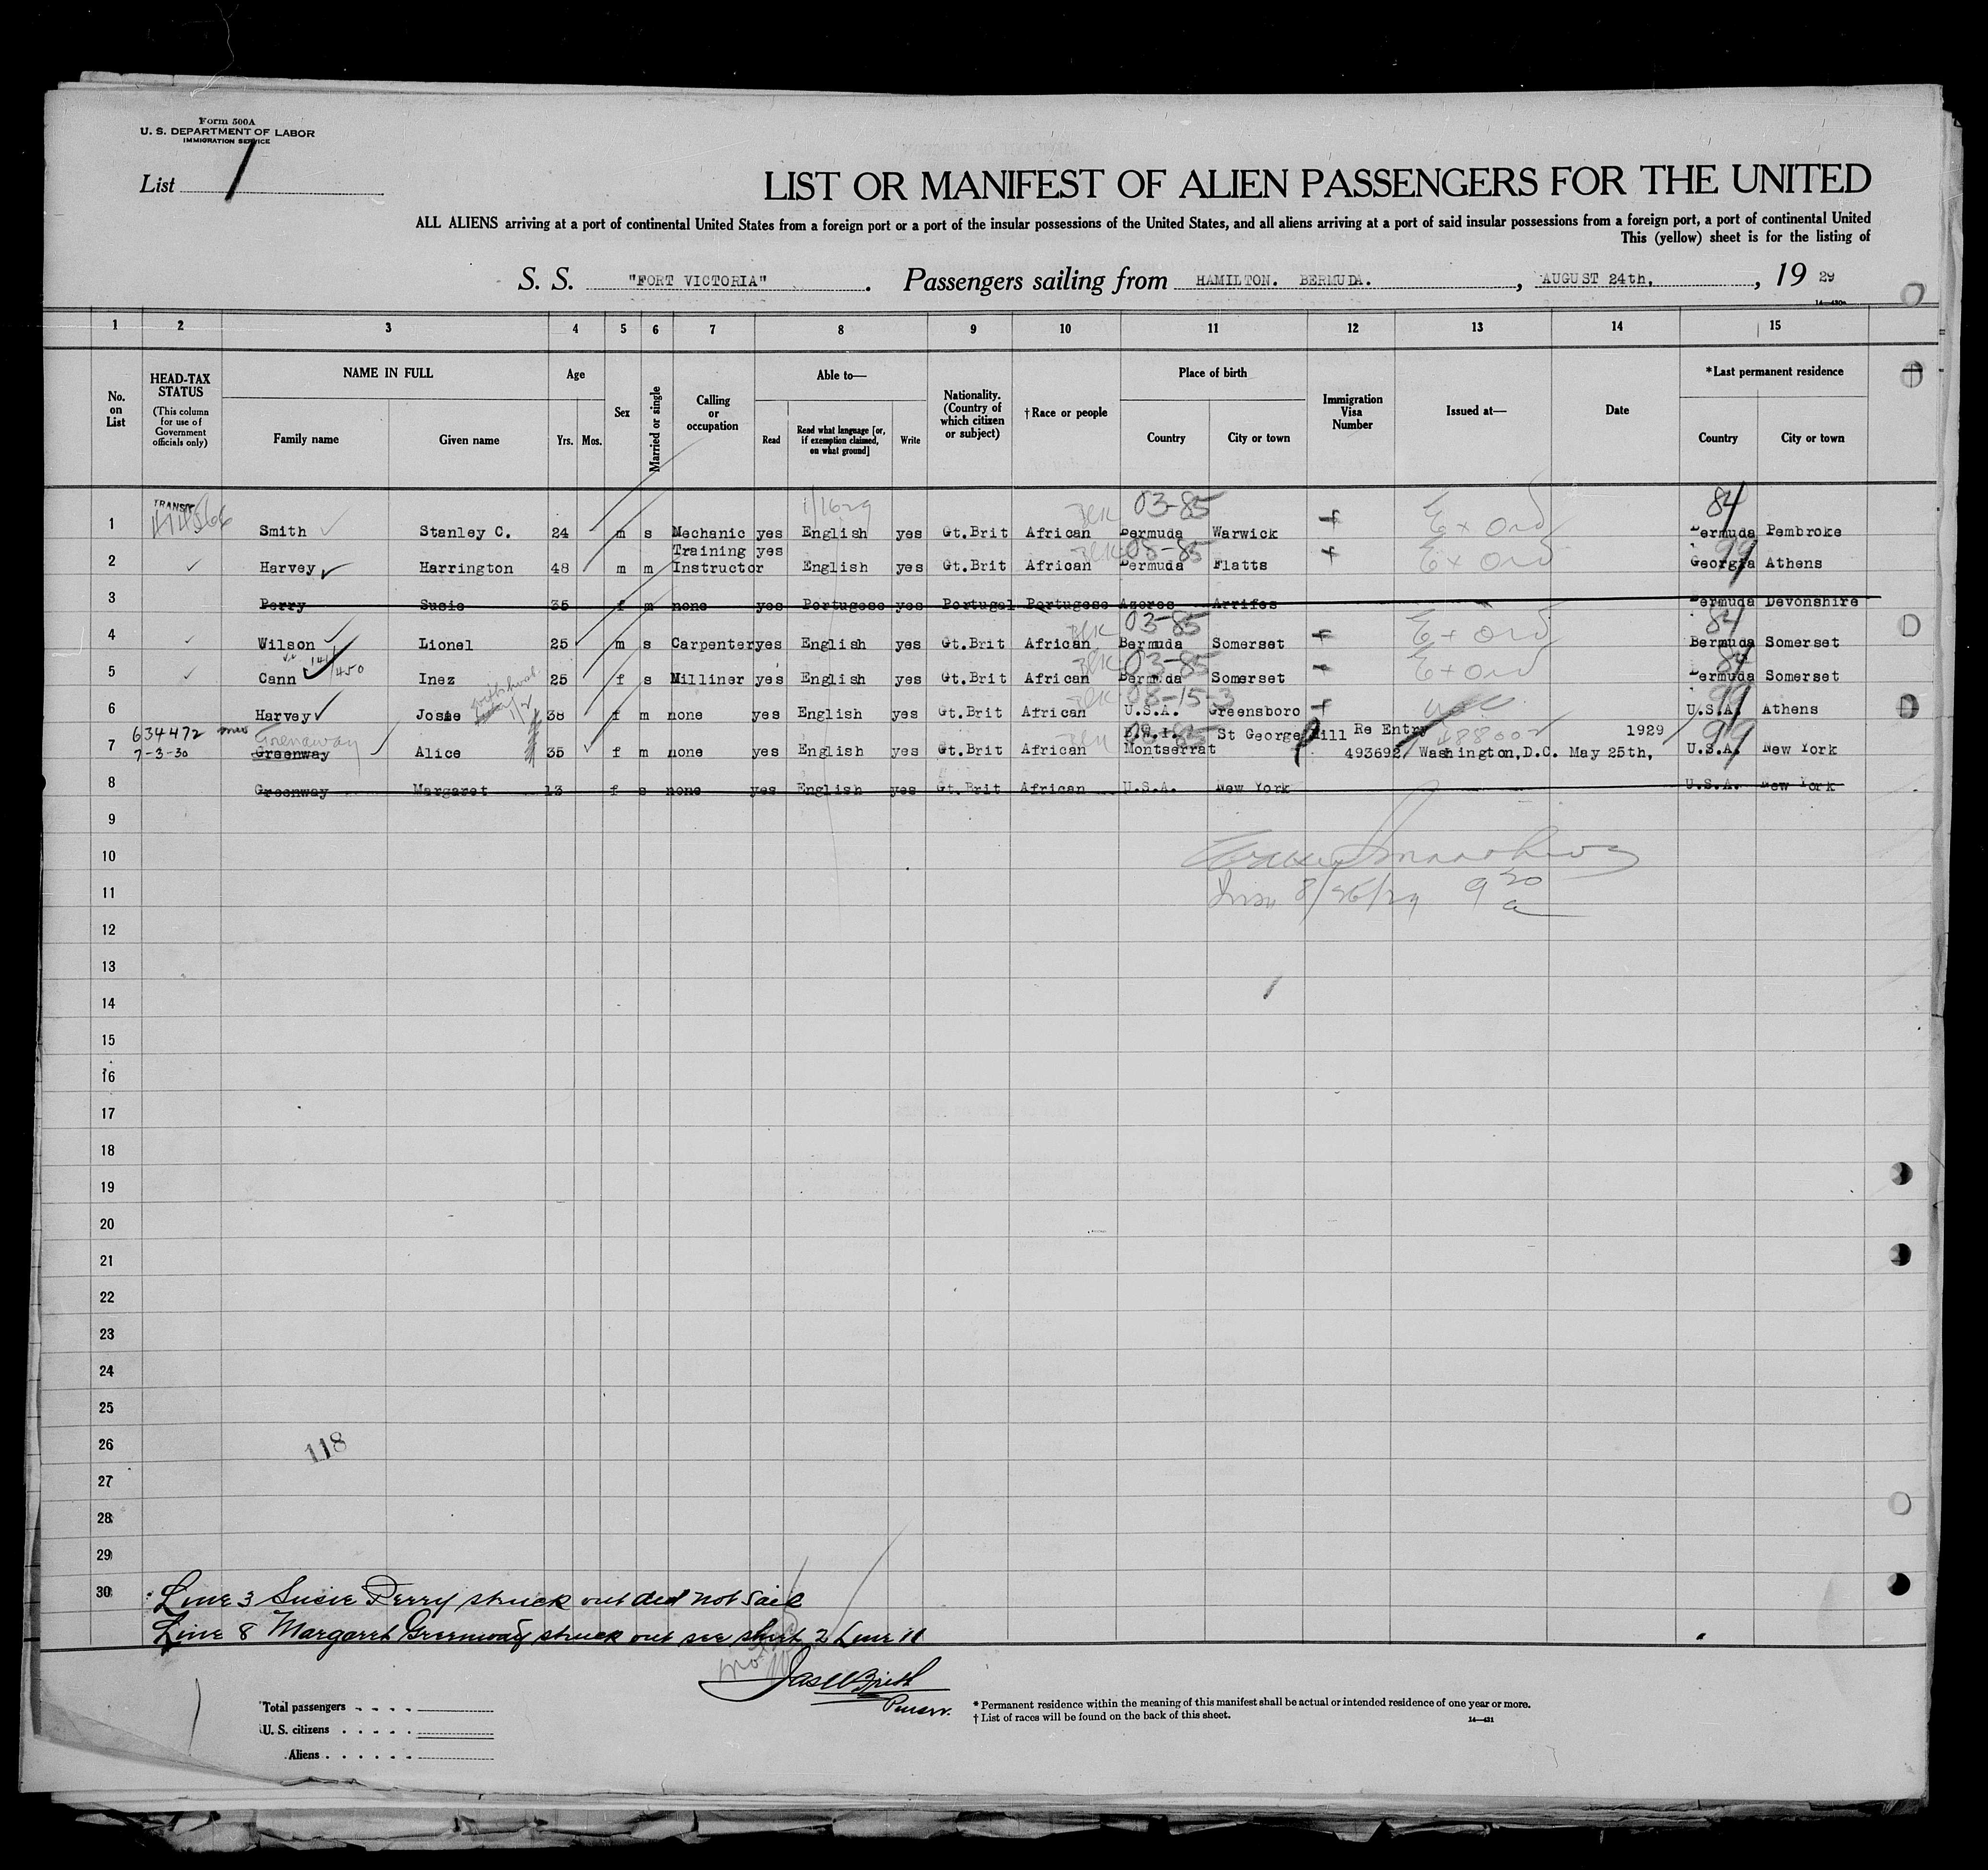 Form 500A
U. S. DEPARTMENT OF LABOR
IMMIGRATION SERVICE
List 1
LIST OR MANIFEST OF ALIEN PASSENGERS FOR THE UNITED
ALL ALIENS arriving at a port of continental United States from a foreign port or a port of the insular possessions of the United States, and all aliens arriving at a port of said insular possessions from a foreign port, a port of continental United
This (yellow) sheet is for the listing of
S. S. "FORT VICTORIA" . Passengers sailing from HAMILTON. BERMUDA. , AUGUST 24th, , 19 29
14—430a
1 2 3 4 5 6 7 8 9 10 11 12 13 14 15
No. on List
HEAD-TAX STATUS (This column for use of Government officials only)
NAME IN FULL
Family name Given name
Age
Yrs. Mos.
Sex
Married or single
Calling or occupation
Able to—
Read Read what language [or, if exemption claimed, on what ground] Write
Nationality. (Country of which citizen or subject)
†Race or people
Place of birth
Country City or town
Immigration Visa Number
Issued at—
Date
*Last permanent residence
Country City or town
TRANSIT 03-85 84
1 Smith Stanley C. 24 m s Mechanic yes English yes Gt.Brit African Bermuda Warwick Ex Ord Bermuda Pembroke
Training yes 08-85 99
2 Harvey Harrington 48 m m Instructor English yes Gt.Brit African Bermuda Flatts Ex Ord Georgia Athens
3 Perry Susie 35 f m none yes Portugese yes Portugal Portugese Azores Arrifes Bermuda Devonshire
03-85 84
4 Wilson Lionel 25 m s Carpenter yes English yes Gt.Brit African Bermuda Somerset Ex Ord Bermuda Somerset
03-85 84
5 Cann Inez 25 f s Milliner yes English yes Gt.Brit African Bermuda Somerset Ex Ord Bermuda Somerset
08-15-3 99
6 Harvey Josie 38 f m none yes English yes Gt.Brit African U.S.A. Greensboro U.S.A. Athens
634472 Grenaway B.W.I. St George Hill Re Entry 488002 1929 99
7 7-3-30 Greenway Alice 35 f m none yes English yes Gt.Brit African Montserrat 493692 Washington,D.C. May 25th, U.S.A. New York
8 Greenway Margaret 13 f s none yes English yes Gt.Brit African U.S.A. New York U.S.A. New York
9
10
11 8/26/29 9 30 a
12
13
14
15
16
17
18
19
20
21
22
23
24
25
26 118
27
28
29
30 Line 3 Susie Perry struck out did not Sail
Line 8 Margaret Greenway struck out see sheet 2 Line 11
Purser.
Total passengers
U. S. citizens
Aliens
* Permanent residence within the meaning of this manifest shall be actual or intended residence of one year or more.
† List of races will be found on the back of this sheet.
14—431